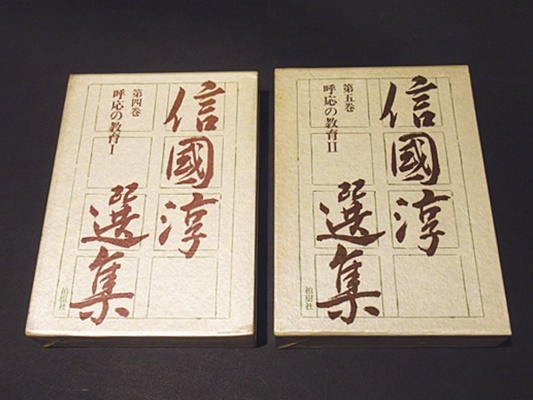 信國淳
選集
第四巻
呼応の教育Ⅰ
柏樹社
信國淳
選集
第五巻
呼応の教育Ⅱ
柏樹社